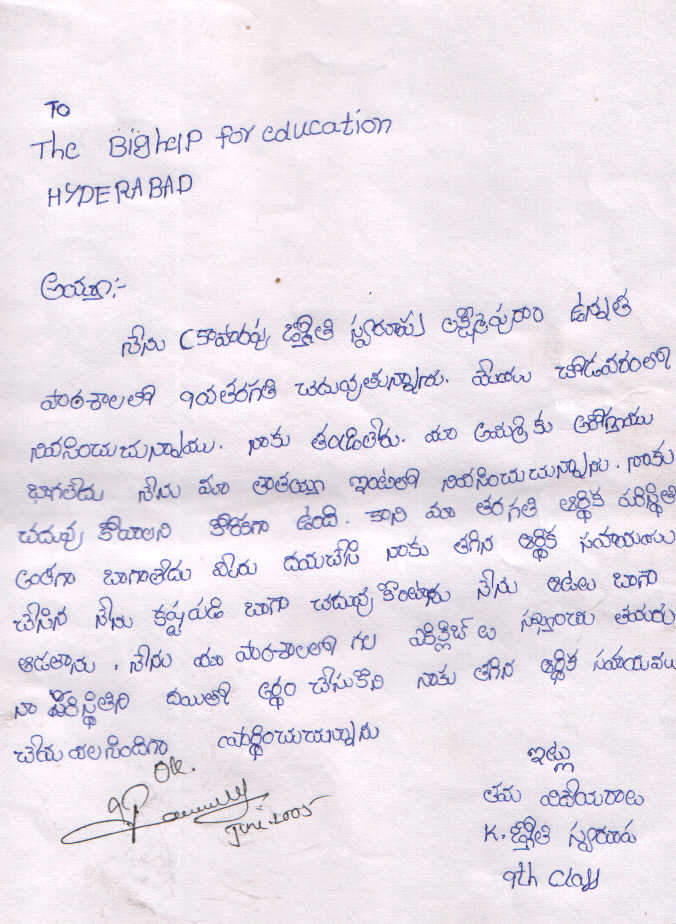 TO
The Big help for education
HYDERABAD
అయ్యా:-
నేను (కాపారపు జ్యోతి స్వరూప) లక్ష్మీపురం ఉన్నత
పాఠశాలలో 9యతరగతి చదువుతున్నాను. మేము చోడవరంలో
నివసించుచున్నాము. నాకు తండ్రిలేరు. మా అమ్మ కు ఆరోగ్యము
బాగలేదు నేను మా తాతయ్యా ఇంటిలో నివసించుచున్నాను. నాకు
చదువు కోవాలని కోరికగా ఉంది. కాని మా తరగతి ఆర్థిక పరిస్థితి
అంతగా బాగాలేదు మీరు దయచేసి నాకు తగిన ఆర్థిక సహాయము
చేసిన నేను కష్టపడి బాగా చదువు కొంటాను నేను ఆటలు బాగా
ఆడతాను. నేను మా పాఠశాలలో గల
నా పరిస్థితిని దయతో అర్థం చేసుకొని నాకు తగిన ఆర్థిక సహాయము
చేయ వలసిందిగా ప్రార్థించుచున్నాను
ఇట్లు
తమ విదేయురాలు
K. జ్యోతి స్వరూప
9th class
OK.
June-2005